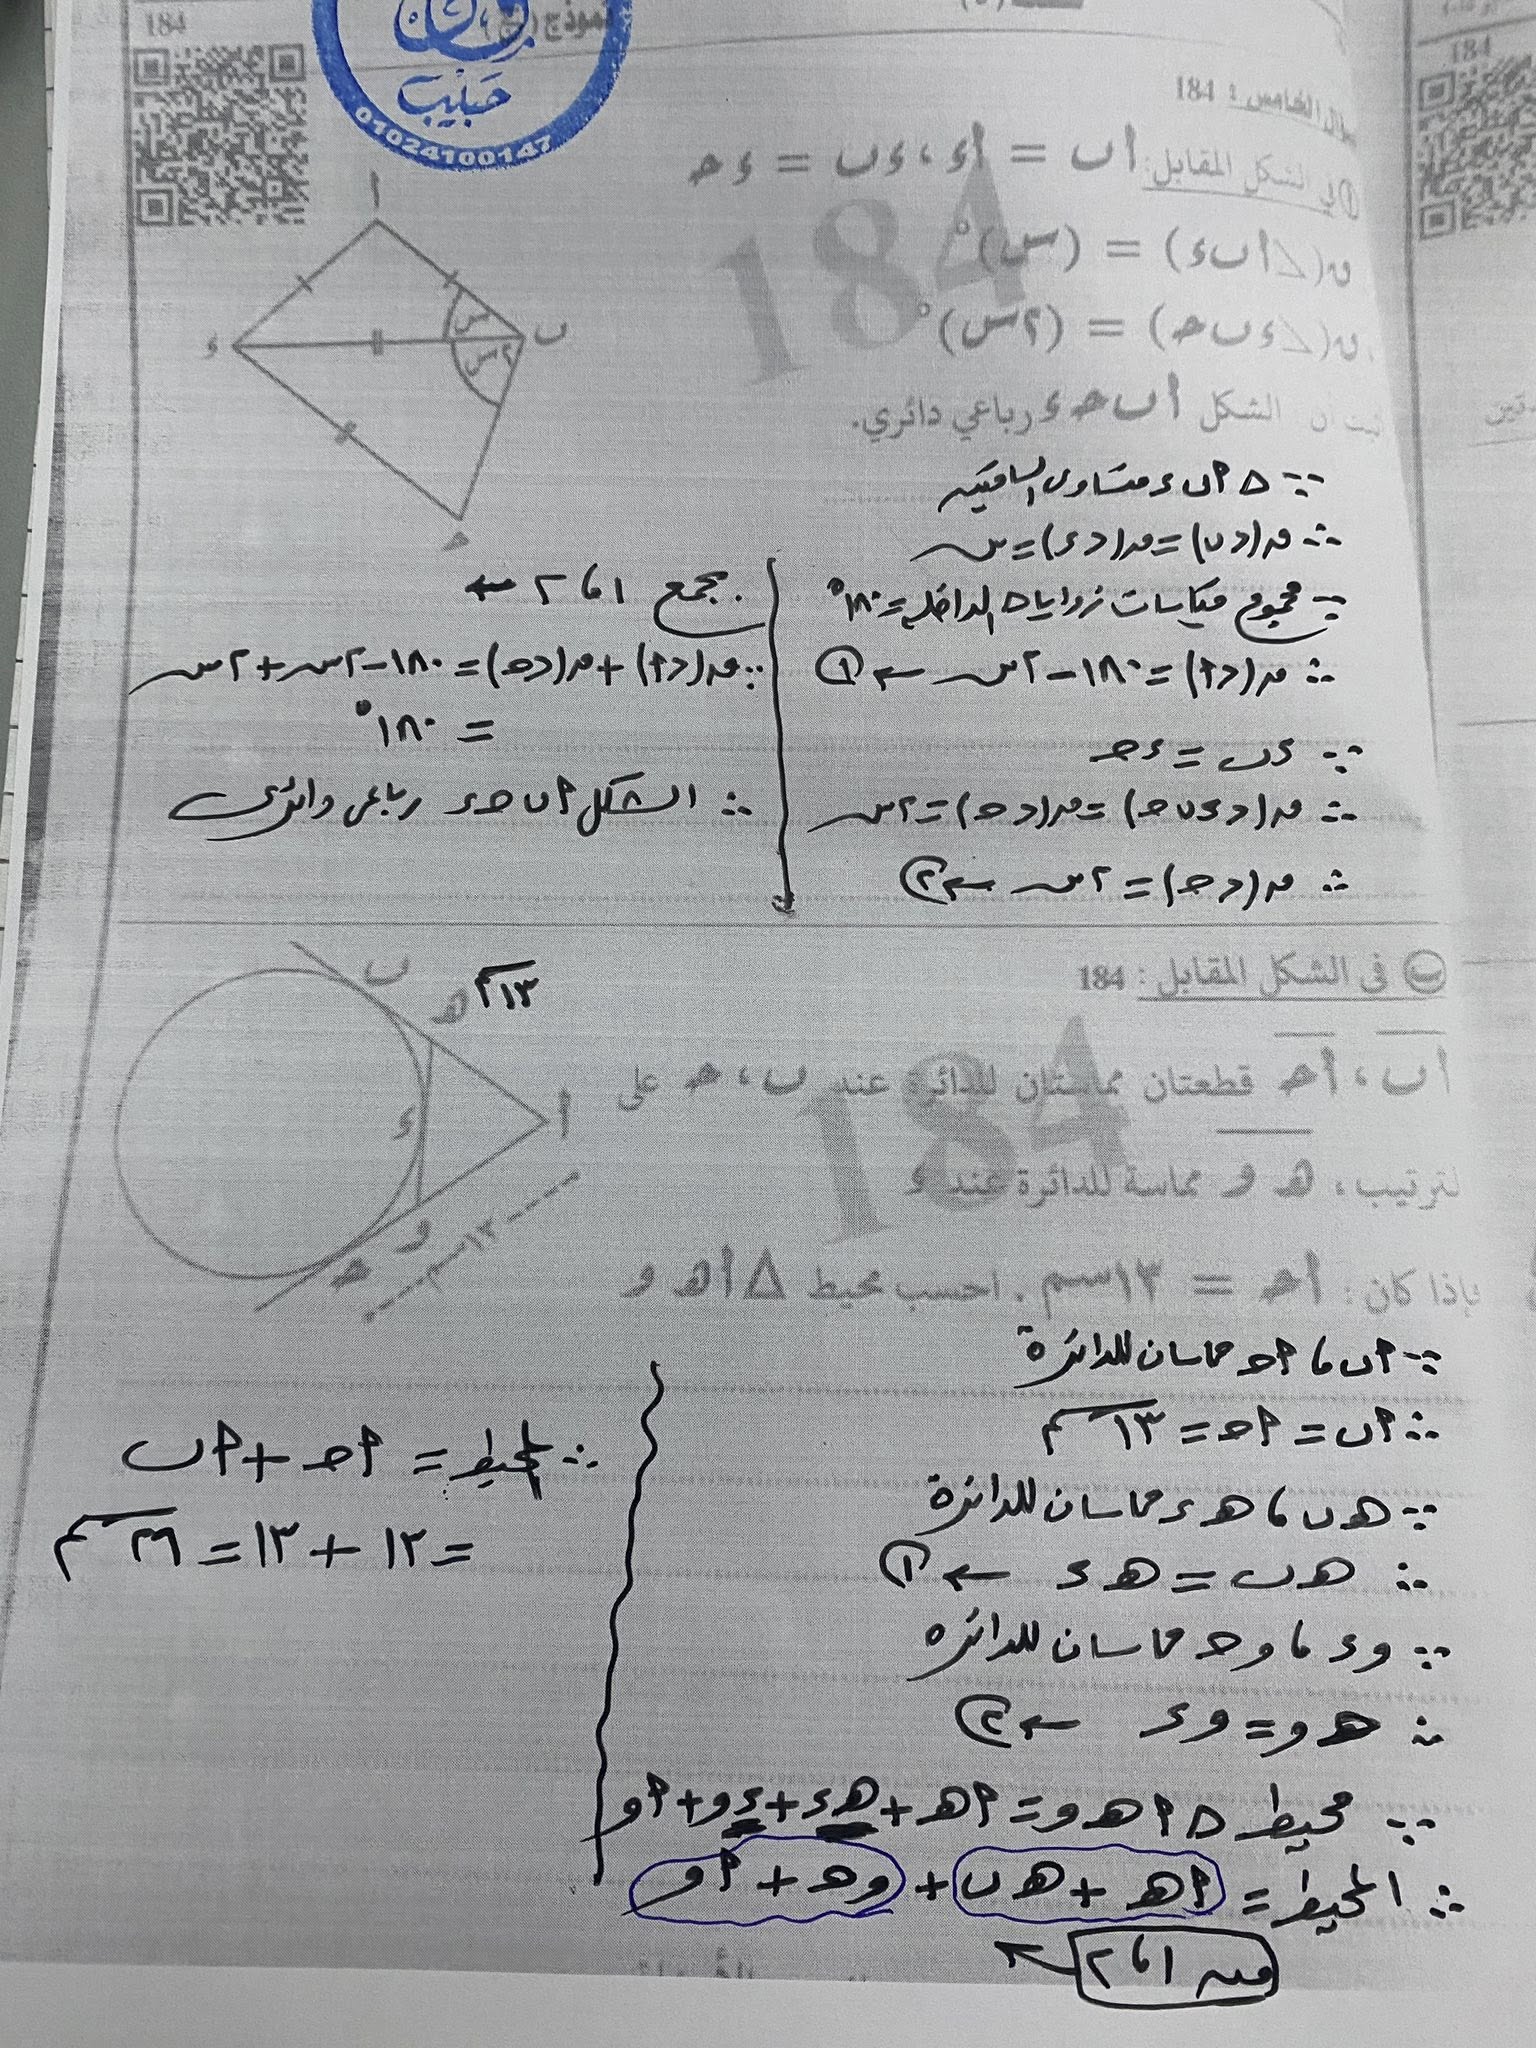 184
نموذج (ج)
حبيب
01024100147
184
الخامس : 184
① في الشكل المقابل: أب = أء ، ءب = ءحـ
ق(∠أبء) = (س)°
ق(∠ءبحـ) = (٢س)°
أن الشكل أبحـء رباعي دائري.
أ
س
٢س
ب
ء
حـ
∵ △ أبء متساوى الساقين
∴ ق(∠ب) = ق(∠ء) = س
∵ مجموع قياسات زوايا △ الداخلة = ١٨٠°
∴ ق(∠أ) = ١٨٠ - ٢س ← ①
∵ ءب = ءحـ
∴ ق(∠ءبحـ) = ق(∠حـ) = ٢س
∴ ق(∠حـ) = ٢س ← ②
بجمع ١ ، ٢ ←
∴ ق(∠أ) + ق(∠حـ) = ١٨٠ - ٢س + ٢س
= ١٨٠°
∴ الشكل أبحـء رباعى دائرى
ب فى الشكل المقابل : 184
أب ، أحـ قطعتان مماستان للدائرة عند ب ، حـ على
لترتيب ، هـ و مماسة للدائرة عند ء
فإذا كان : أحـ = ١٣سم . احسب محيط △أهـ و
ب
هـ
١٣سم
أ
ء
و
حـ
١٣سم
∵ أب ، أحـ مماسان للدائرة
∴ أب = أحـ = ١٣سم
∵ هـب ، هـء مماسان للدائرة
∴ هـب = هـء ← ①
∵ وء ، وحـ مماسان للدائرة
∴ حـو = وء ← ②
∵ محيط △ أهـو = أهـ + هـء + ءو + أو
∴ المحيط = أهـ + هـب + وحـ + أو
من ١ ، ٢
∴ المحيط = أحـ + أب
= ١٣ + ١٣ = ٢٦سم
184
184